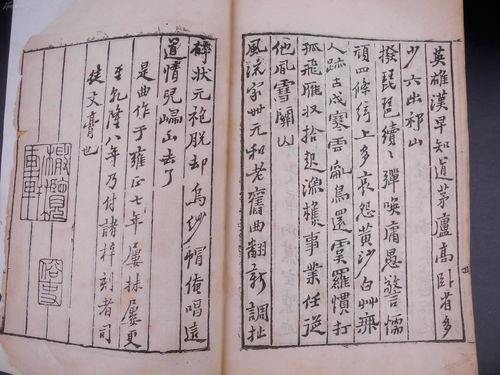 英雄漢早知道茅廬高臥省多
少六出祁山
撥琵琶續〻彈喚庸愚警懦
頑四條絃上多哀怨黃沙白艸無
人跡古戍寒雲亂鳥還虞羅慣打
孤飛雁收拾起漁樵事業任從
他風雪關山
風流家世元和老舊曲翻新調扯
碎狀元袍脫却烏紗帽俺唱這
道情兒歸山去了
是曲作于雍正七年屢抹屢更
至乾隆八年乃付諸梓刻者司
徒文膏也
橄欖軒
俗吏